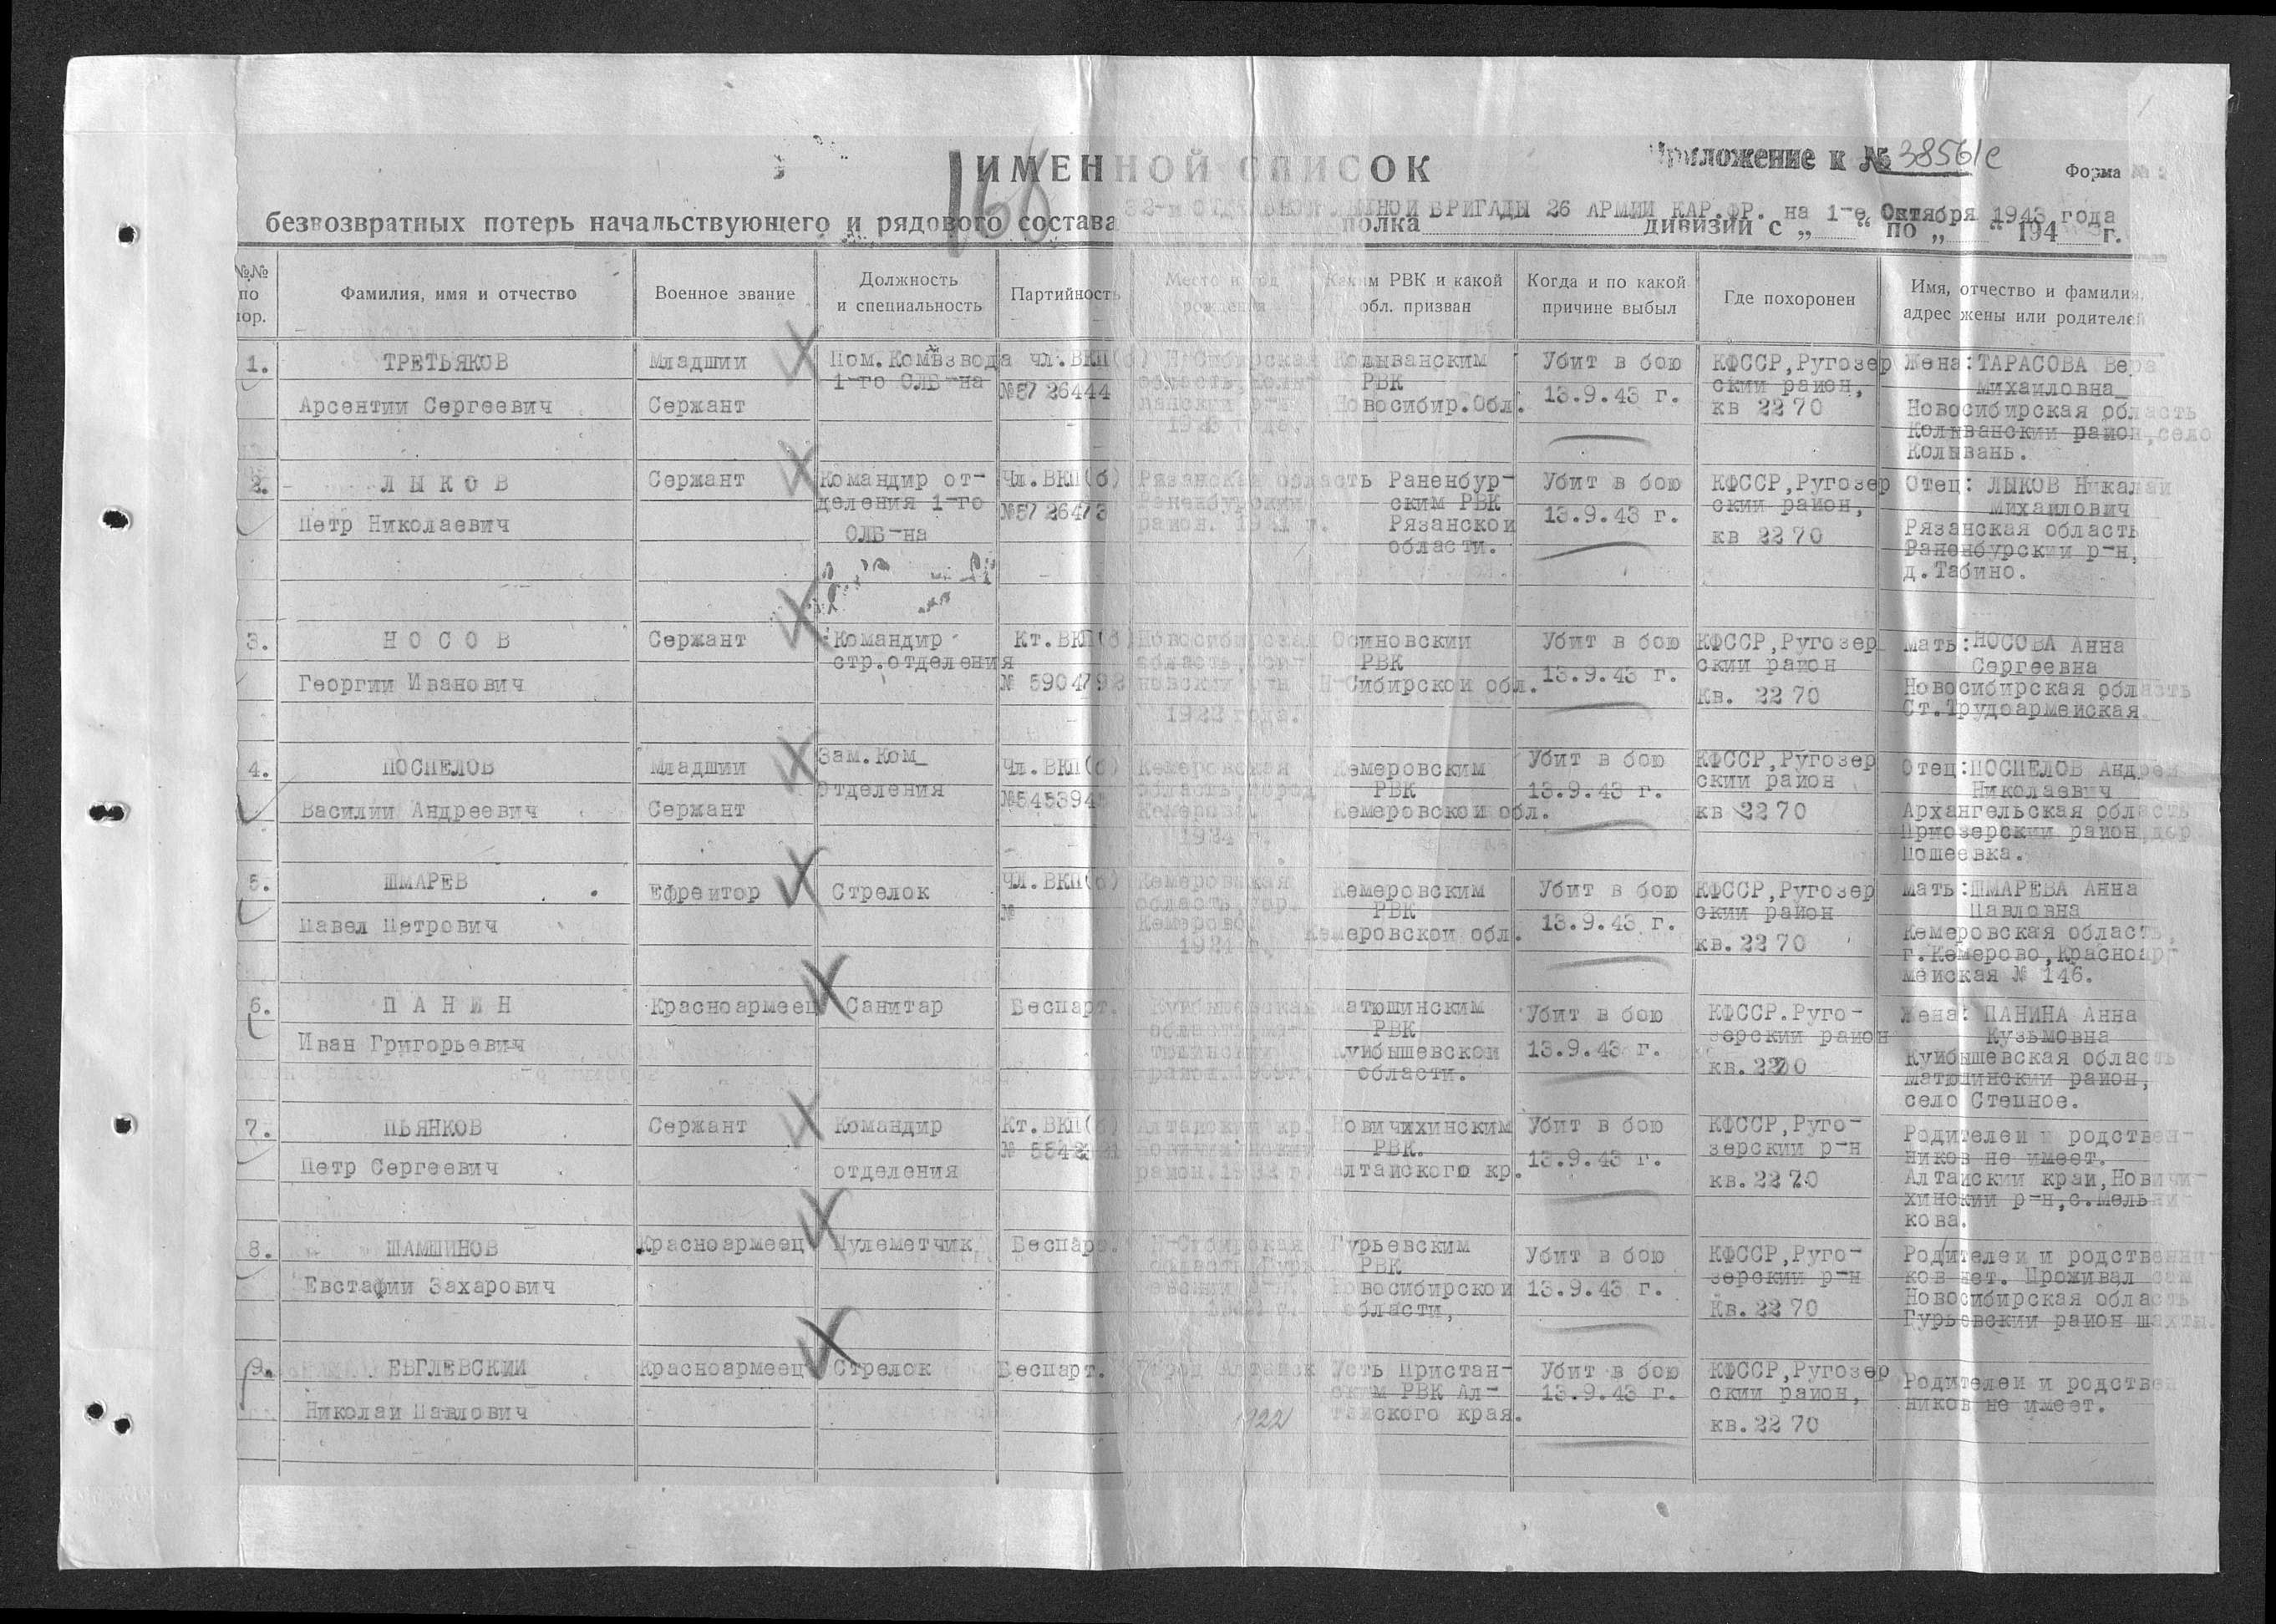 Приложение к № 38561с
Форма №
168
ИМЕННОЙ СПИСОК
32-й ОТДЕЛЬНОЙ ЛЫЖНОЙ БРИГАДЫ 26 АРМИИ КАР.ФР. на 1-е Октября 1943 года
безвозвратных потерь начальствующего и рядового состава полка дивизии с „ “ по „ “ 194 г.
№№ по пор.
Фамилия, имя и отчество
Военное звание
Должность и специальность
Партийность
Место и год рождения
Каким РВК и какой обл. призван
Когда и по какой причине выбыл
Где похоронен
Имя, отчество и фамилия, адрес жены или родителей
1.
ТРЕТЬЯКОВ
Арсентии Сергеевич
Младшии
Сержант
Пом.Комвзвода
1-го ОЛБ-на
чл.ВКП(б)
№5726444
Н-Сибирская
область,
1923 года.
Колыванским
РВК
Новосибир.Обл.
Убит в бою
13.9.43 г.
КФССР,Ругозер
скии район,
кв 2270
Жена:ТАРАСОВА Вера
Михаиловна_
Новосибирская область
Колыванскии район,село
Колывань.
2.
ЛЫКОВ
Петр Николаевич
Сержант
Командир от-
деления 1-го
ОЛБ-на
Чл.ВКП(б)
№5726473
Рязанская область
Раненбурскии
район. 1921 г.
Раненбур-
ским РВК
Рязанскои
области.
Убит в бою
13.9.43 г.
КФССР,Ругозер
скии район,
кв 2270
Отец: ЛЫКОВ Никалаи
Михаилович
Рязанская область
Раненбурскии р-н,
д.Табино.
3.
НОСОВ
Георгии Иванович
Сержант
Командир
стр.отделения
Кт.ВКП(б)
№ 5904798
Новосибирская
область,Оси-
новскии р-н
1922 года.
Осиновскии
РВК
Н-Сибирскои обл.
Убит в бою
13.9.43 г.
КФССР,Ругозер
скии район
Кв. 2270
Мать:НОСОВА Анна
Сергеевна
Новосибирская область
Ст.Трудоармеиская.
4.
ПОСПЕЛОВ
Василии Андреевич
Младшии
Сержант
Зам.Ком_
Отделения
Чл.ВКП(б)
Кемеровская
область,город
Кемерово.
1924 г.
Кемеровским
РВК
Кемеровскои обл.
Убит в бою
13.9.43 г.
КФССР,Ругозер
скии район
кв 2270
Отец:ПОСПЕЛОВ Андреи
Николаевич
Архангельская область
Приозерскии район,дер
Пошеевка.
5.
ШМАРЕВ
Павел Петрович
Ефреитор
Стрелок
Чл.ВКП(б)
№
Кемеровская
область,гор.
Кемерово.
1924 г.
Кемеровским
РВК
Кемеровскои обл.
Убит в бою
13.9.43 г.
КФССР,Ругозер
скии район
кв.2270
Мать:ШМАРЕВА Анна
Павловна
Кемеровская область,
г.Кемерово,Красноар-
меиская № 146.
6.
ПАНИН
Иван Григорьевич
Красноармеец
Санитар
Беспарт.
Куибышевская
область,Ма-
тюшинскии
район.1909г.
Матюшинским
РВК
Куибышевскои
области.
Убит в бою
13.9.43 г.
КФССР.Руго-
зерскии район
кв.2270
Жена: ПАНИНА Анна
Кузьмовна
Куибышевская область
Матюшинскии район,
село Степное.
7.
ПЬЯНКОВ
Петр Сергеевич
Сержант
Командир
отделения
Кт.ВКП(б)
Алтаискии кр.
Новичихинскии
Новичихинским
РВК.
Алтаиского кр.
Убит в бою
13.9.43 г.
КФССР,Руго-
зерскии р-н
кв.2270
Родителеи и родствен-
ников не имеет.
Алтаискии краи,Новичи-
хинскии р-н,с.Мельни-
кова.
8.
ШАМШИНОВ
Евстафии Захарович
Красноармеец
Пулеметчик
Беспарт.
Н-Сибирская
область,Гурь
евскии р-н.
Гурьевским
РВК
Новосибирскои
области,
Убит в бою
13.9.43 г.
КФССР,Руго-
зерскии р-н
Кв.2270
Родителеи и родственни-
ков нет. Проживал сам
Новосибирская область
Гурьевскии район шахты.
9.
ЕВГЛЕВСКИИ
Николаи Павлович
Красноармеец
Стрелок
Беспарт.
Город Алтаиск
1922
Усть Пристан-
ским РВК Ал-
таиского края.
Убит в бою
13.9.43 г.
КФССР,Ругозер
скии район,
кв.2270
Родителеи и родствен
ников не имеет.